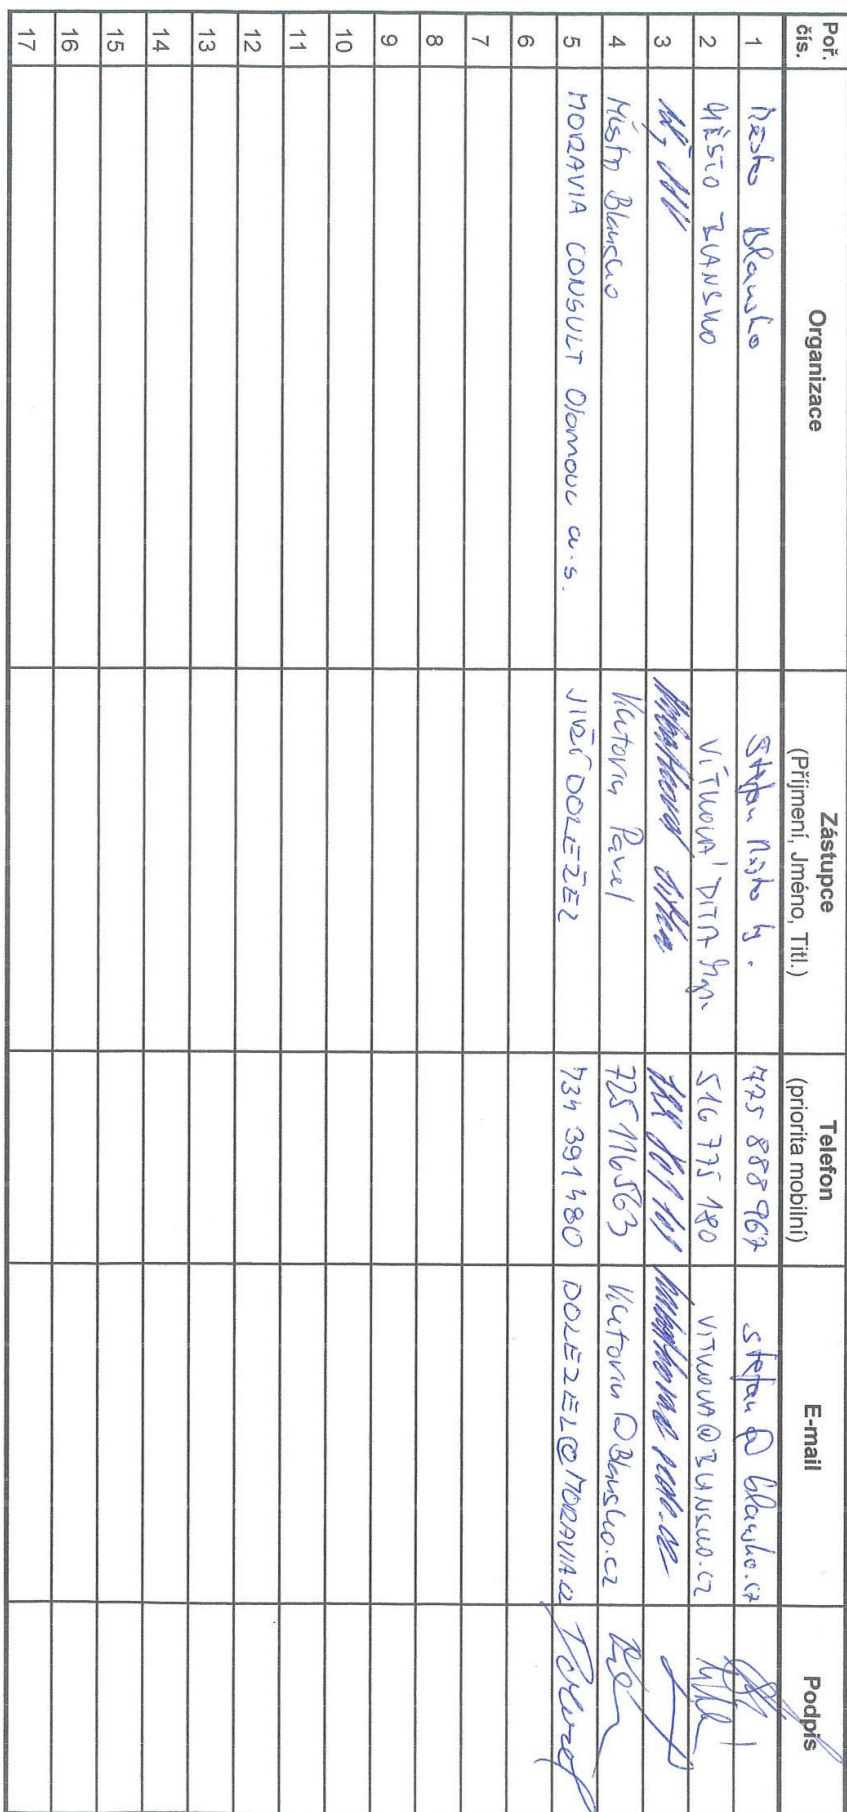 Poř. čís. Organizace Zástupce (Příjmení, Jméno, Titl.) Telefon (priorita mobilní) E-mail Podpis
1 Město Blansko Štefan 775 888 967 stefan@blansko.cz
2 MĚSTO BLANSKO VÍTKOVÁ DITA Mgr. 516 775 180 VITKOVA@BLANSKO.CZ
3
4 Město Blansko Kutorin Pavel 725 116 563 Kutorin@Blansko.cz
5 MORAVIA CONSULT Olomouc a.s. JIŘÍ DOLEŽEL 734 391 480 DOLEZEL@MORAVIA.CZ
6
7
8
9
10
11
12
13
14
15
16
17